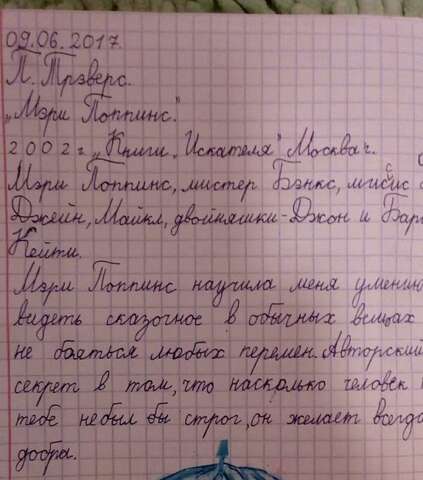 09.06.2017.
П. Трэверс.
„Мэри Поппинс".
2002 г. „Книги „Искателя" Москва г.
Мэри Поппинс, мистер Бэнкс, мисис
Джейн, Майкл, двойняшки - Джон и Бар
Кейти.
Мэри Поппинс научила меня умению
видеть сказочное в обычных вещах
не бояться любых перемен. Авторский
секрет в том, что насколько человек
тебе небыл бы строг, он желает всегда
добра.